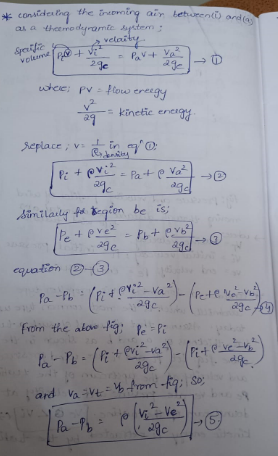 * considering the incoming air between (i) and (a)
as a thermodynamic system;
specific volume velocity
Piv + Vi²/2gc = Pav + Va²/2gc → ①
where; PV = flow energy
V²/2g = kinetic energy
Replace; v = 1/ρ → density in eqⁿ ①;
Pi + ρVi²/2gc = Pa + ρ Va²/2gc → ②
Similarly for region be is;
Pe + ρve²/2gc = Pb + ρ vb²/2gc → ③
equation ② - ③
Pa - Pb = (Pi + ρ(Vi² - Va²)/2gc) - (Pe + ρ(Ve² - Vb²)/2gc) → ④
From the above fig; Pe = Pi
Pa - Pb = (Pi + ρ(Vi² - Va²)/2gc) - (Pi + ρ(Ve² - Vb²)/2gc)
and Va = Vt = Vb from fig; so;
Pa - Pb = ρ(Vi² - Ve²/2gc) → ⑤